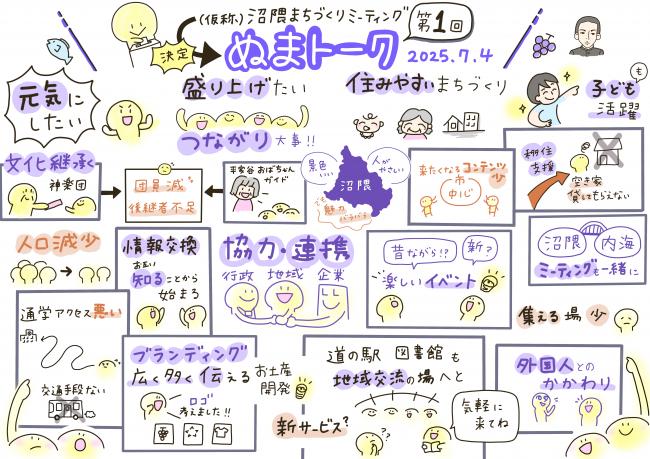 (仮称)沼隈まちづくりミーティング
第1回
決定
ぬまトーク
2025.7.4
元気に
したい
盛り上げたい
つながり大事!!
住みやすいまちづくり
子ども
も
活躍
文化継承
神楽団
団員減
後継者不足
平家谷おばちゃん
ガイド
景色
いい
人が
やさしい
沼隈
でも
魅力
バラバラ
来たくなるコンテンツ
少
市
中心
移住
支援
空き家
貸してもらえない
人口減少
情報交換
お互い
知ることから
始まる
協力・連携
行政
地域
企業
昔ながら!?
新?
楽しいイベント
沼隈
内海
ミーティングも一緒に
集える場少
通学アクセス悪い
交通手段ない
ブランディング
広く多く伝える
ロゴ
考えました!!
お土産
開発
新サービス?
道の駅 図書館も
地域交流の場へと
気軽に
来てね
外国人との
かかわり